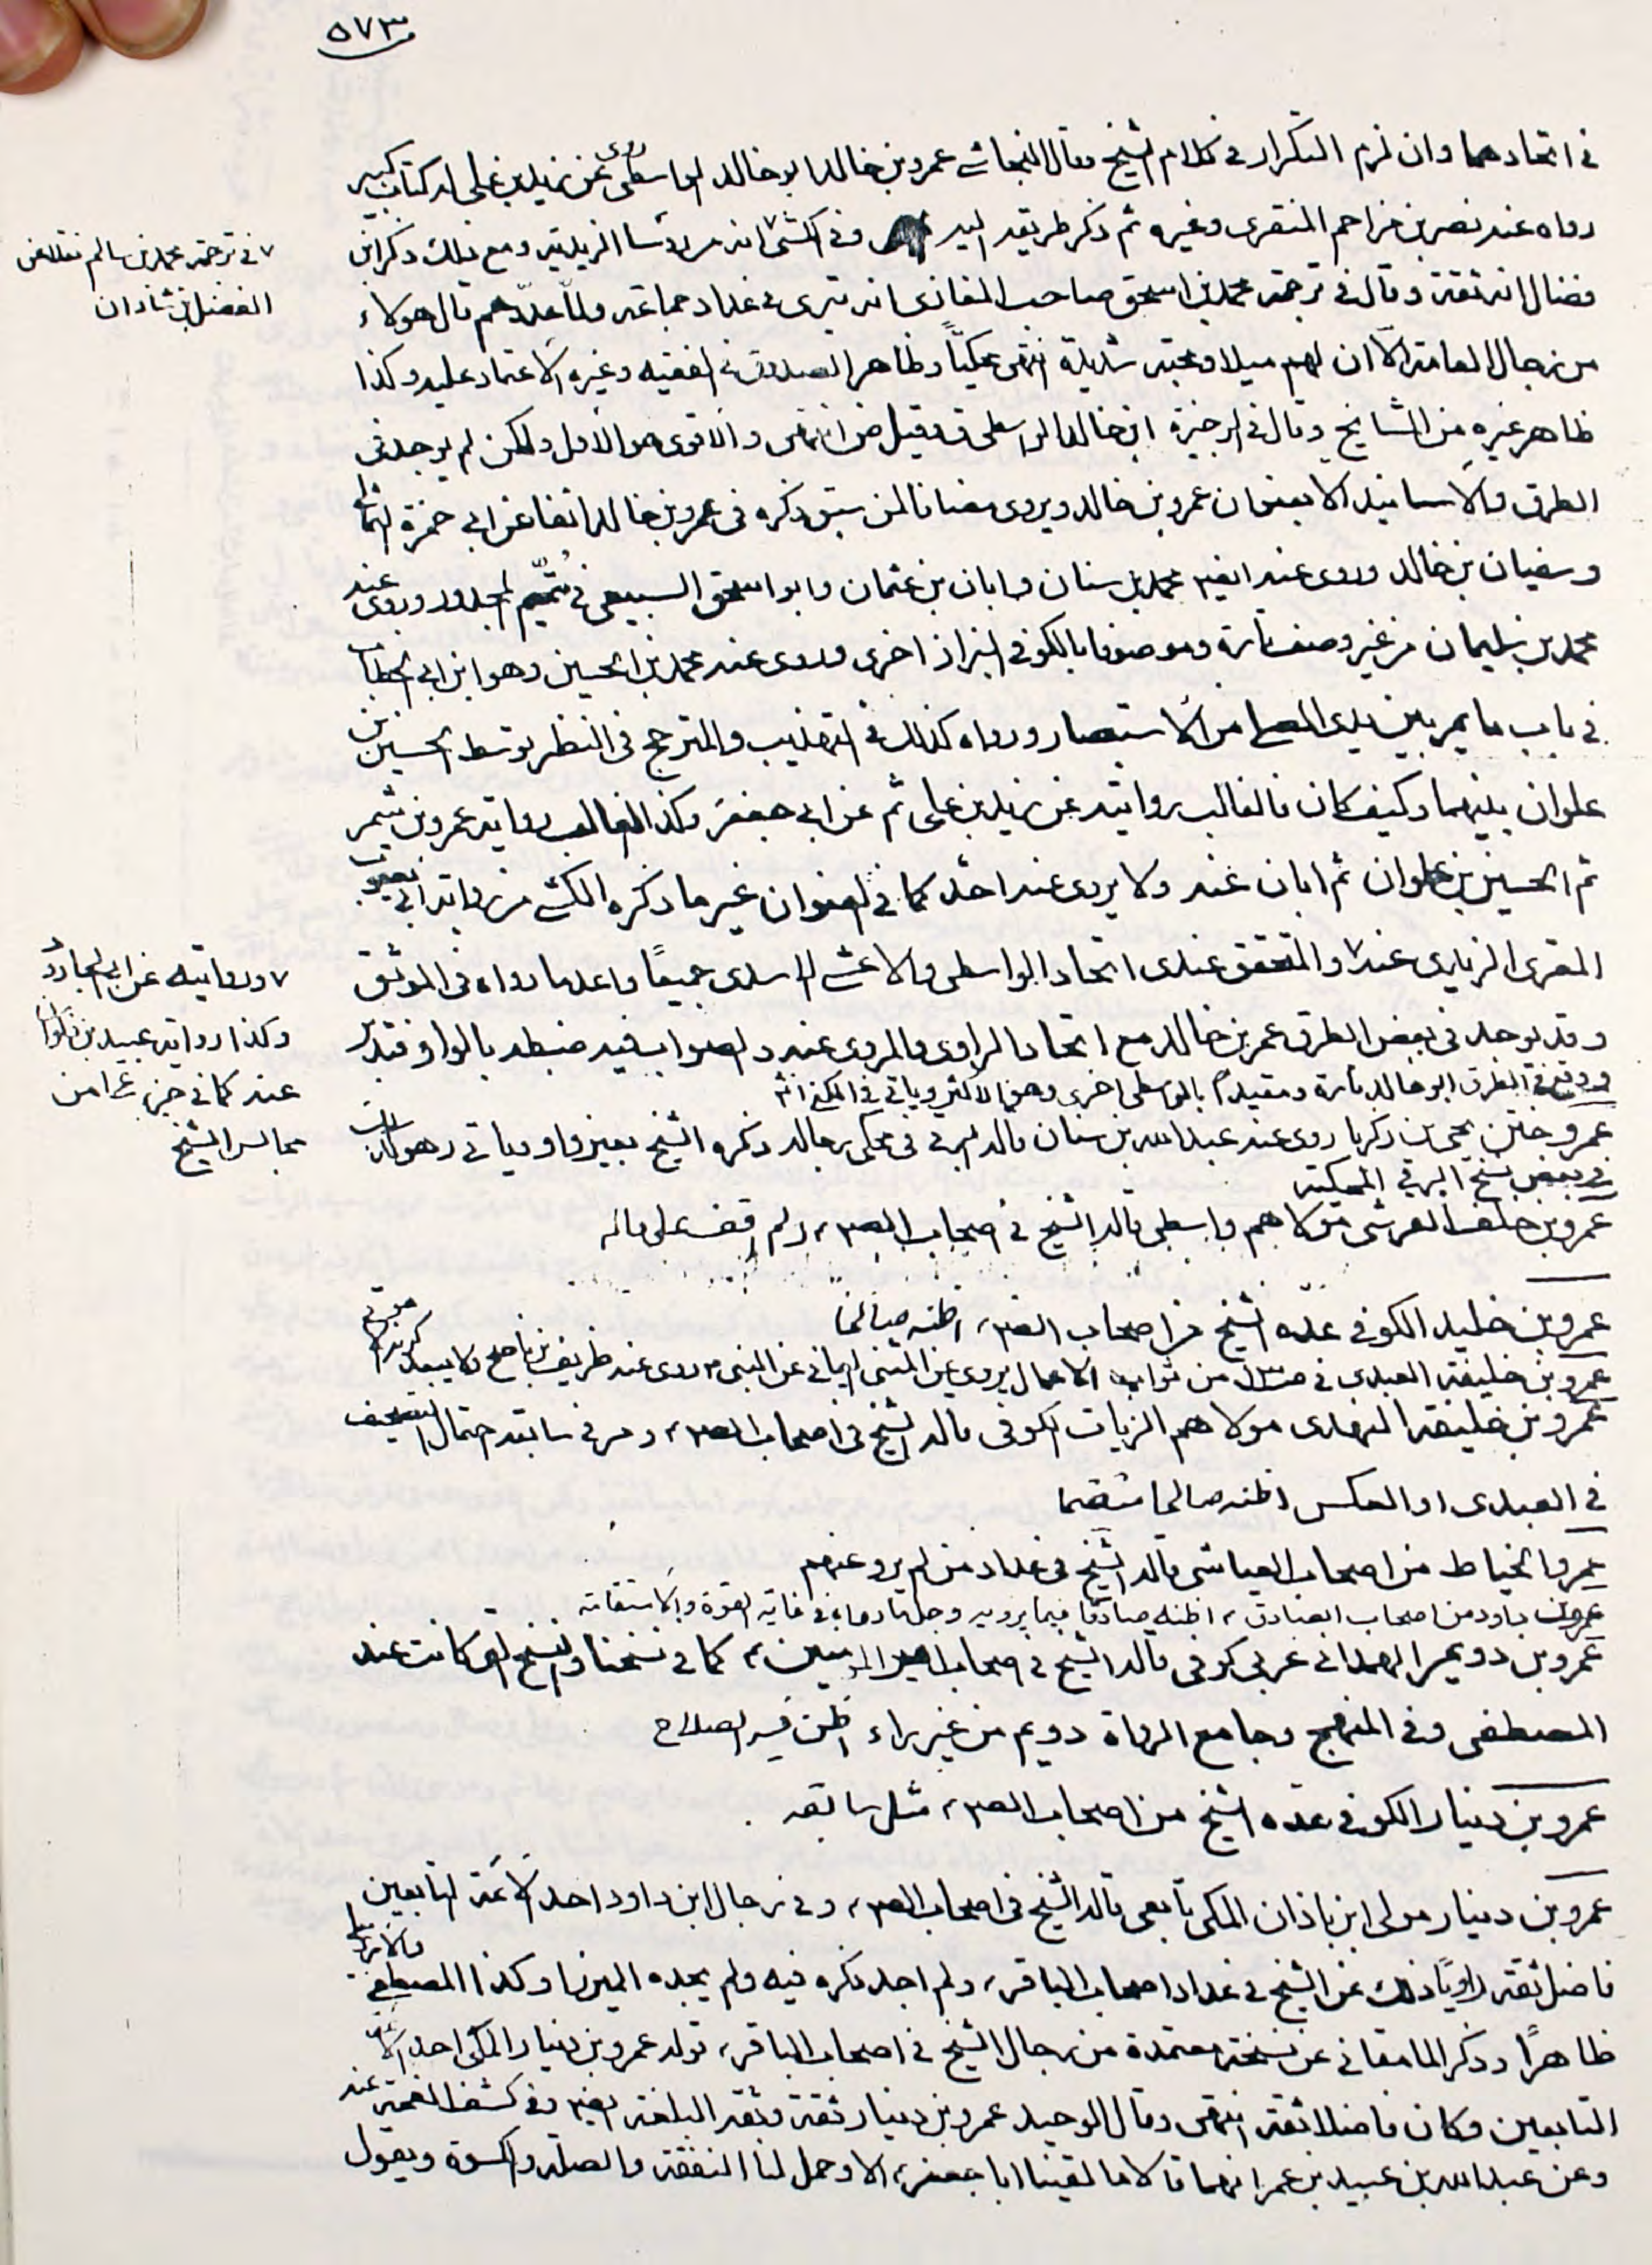 ٥٧٣
في اتحادهما وان لزم التكرار في كلام الشيخ وقال النجاشي عمرو بن خالد ابو خالد الواسطي روى عن زيد بن علي له كتاب كبير
رواه عنه نصر بن مزاحم المنقري وغيره ثم ذكر طريقه اليه وفي الكشي انه من رؤسا الزيدية ومع ذلك ذكر ابن
فضال انه ثقة وقال في ترجمة محمد بن اسحق صاحب المغازي انه بتري في عداد جماعة ولما عدّهم قال هولاء
من رجال العامة الا ان لهم ميلا ومحبة شديدة انتهى محكياً وظاهر الصدوق في الفقيه وغيره الاعتماد عليه وكذا
ظاهر غيره من المشايخ وقال في الوجيزة ابن خالد الواسطي ق وقيل ض انتهى والاقوى هو الاول ولكن لم يوجد في
الطرق والاسانيد الا بعنوان عمرو بن خالد ويروى مضافا لمن سبق ذكره في عمرو بن خالد انفا عن ابي حمزة الثمالي
وسفيان بن خالد وروى عنه ايضا محمد بن سنان وابان بن عثمان وابو اسحق السبيعي في تميم لمجدور وروى عنه
محمد بن سليمان من غير وصف تارة وموصوفا بالكوفي البزاز اخرى وروى عنه محمد بن الحسين وهو ابن ابي الخطاب
في باب ما يمر بين يدي المصلي من الاستبصار ورواه كذلك في التهذيب والمترجح في النظر توسط الحسين بن
علوان بينهما وكيف كان فالغالب روايته عن زيد بن علي ثم عن ابي جعفر وكذا الغالب رواية عمرو بن شمر
ثم الحسين بن علوان ثم ابان عنه ولا يروى عنه احد كما في العنوان غير ما ذكره الكشي من رواية ابي يعقوب
المقري الزيدي عنه ٧ والمتحقق عندى اتحاد الواسطي والاعشى الاسدى جميعاً واعد ما رواه في الموثق
وقد يوجد في بعض الطرق عمر بن خالد مع اتحاد الراوى والمروى عنه والصواب فيه ضبطه بالواو فتدبر
ووقع في الطرق ابو خالد تارة ومقيداً بالواسطي اخرى وهو الاكثر وياتي في الكنى انشـ
عمرو ختن يحيى بن زكريا روى عنه عبد الله بن سنان قاله البرقي في محكي رجاله وذكره الشيخ بغير واو وياتي وهو كذلك
في بعض نسخ البرقي المحكية
عمرو بن خلف القرشي مولاهم واسطي قاله الشيخ في اصحاب الصـ ولم اقف على ماله
عمرو بن خليد الكوفي عدّه الشيخ من اصحاب الصـ اظنه صالحاً
عمرو بن خليفة العبدي في من ثواب الاعمال يروي عن المثنى اليماني عن النبي روى عنه ظريف بن ناصح ولا يبعد كونه
عمرو بن خليفة النهدى مولاهم الزيات الكوفي قاله الشيخ في اصحاب الصـ ومر في سابقه احتمال التصحيف
في العبدى او العكس اظنه صالحا مثلهما
عمرو الخياط من اصحاب العياشي قاله الشيخ في عداد من لم يرو عنهم
عمرو بن داود من اصحاب الصادق اظنه صادقا فيما يرويه وجل مارواه في غاية القوة والاستقامة
عمرو بن دويمر الهمداني عربي كوفي قاله الشيخ في اصحاب امير المؤمنين كما في نسختنا والنسخ التي كانت عند
المصطفى وفي المنهج وجامع الرواة دويم من غير راء اظن فيه الصلاح
عمرو بن دينار الكوفي عدّه الشيخ من اصحاب الصـ مثل سابقه
عمرو بن دينار مولى ابن باذان المكي تابعي قاله الشيخ في اصحاب الصـ وفي رجال ابن داود احد الائمة التابعين
فاضل ثقة راوياً ذلك عن الشيخ في عداد اصحاب الباقر ولم اجد ذكره فيه ولم يجده الميرزا وكذا المصطفى
ظاهراً وذكر المامقاني عن نسخة معتمدة من رجال الشيخ في اصحاب الباقر قوله عمرو بن دينار المكي احد الائمة
التابعين وكان فاضلا ثقة انتهى وقال الوحيد عمرو بن دينار ثقة وثقه البلغة ايضا وفي كشف الغمة عنه
وعن عبد الله بن عبيد بن عمر انهما قالا ما لقينا ابا جعفر الا وحمل لنا النفقة والصلة والكسوة ويقول
٧ في ترجمة محمد بن سالم نقلا عن
الفضل بن شاذان
٧ وروايته عن ابي الجارود
وكذا رواية عبيد بن ذكوان
عنه كما في جزء من
مجالس الشيخ